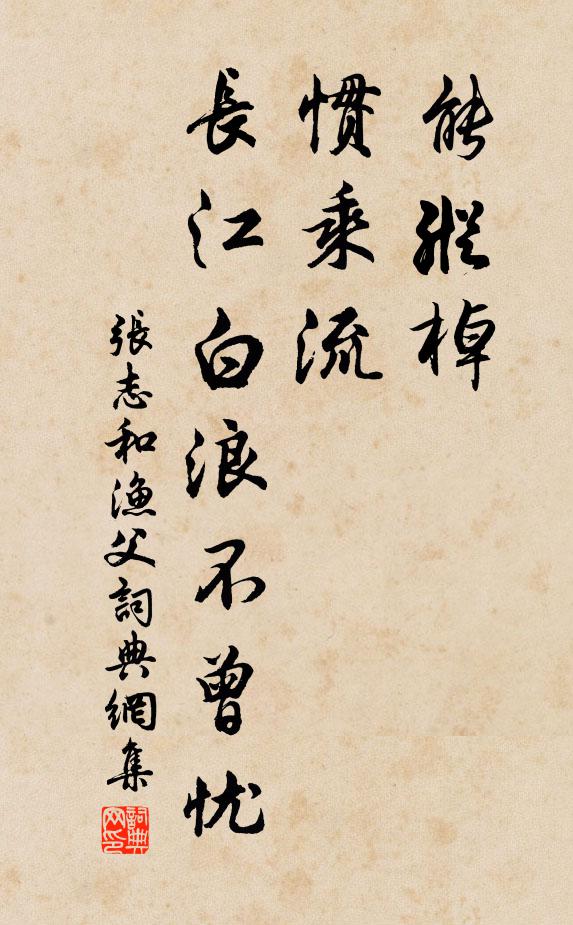 能縱棹
慣乘流
長江白浪不曾忧
張志和漁父詞典網集
詞典网印